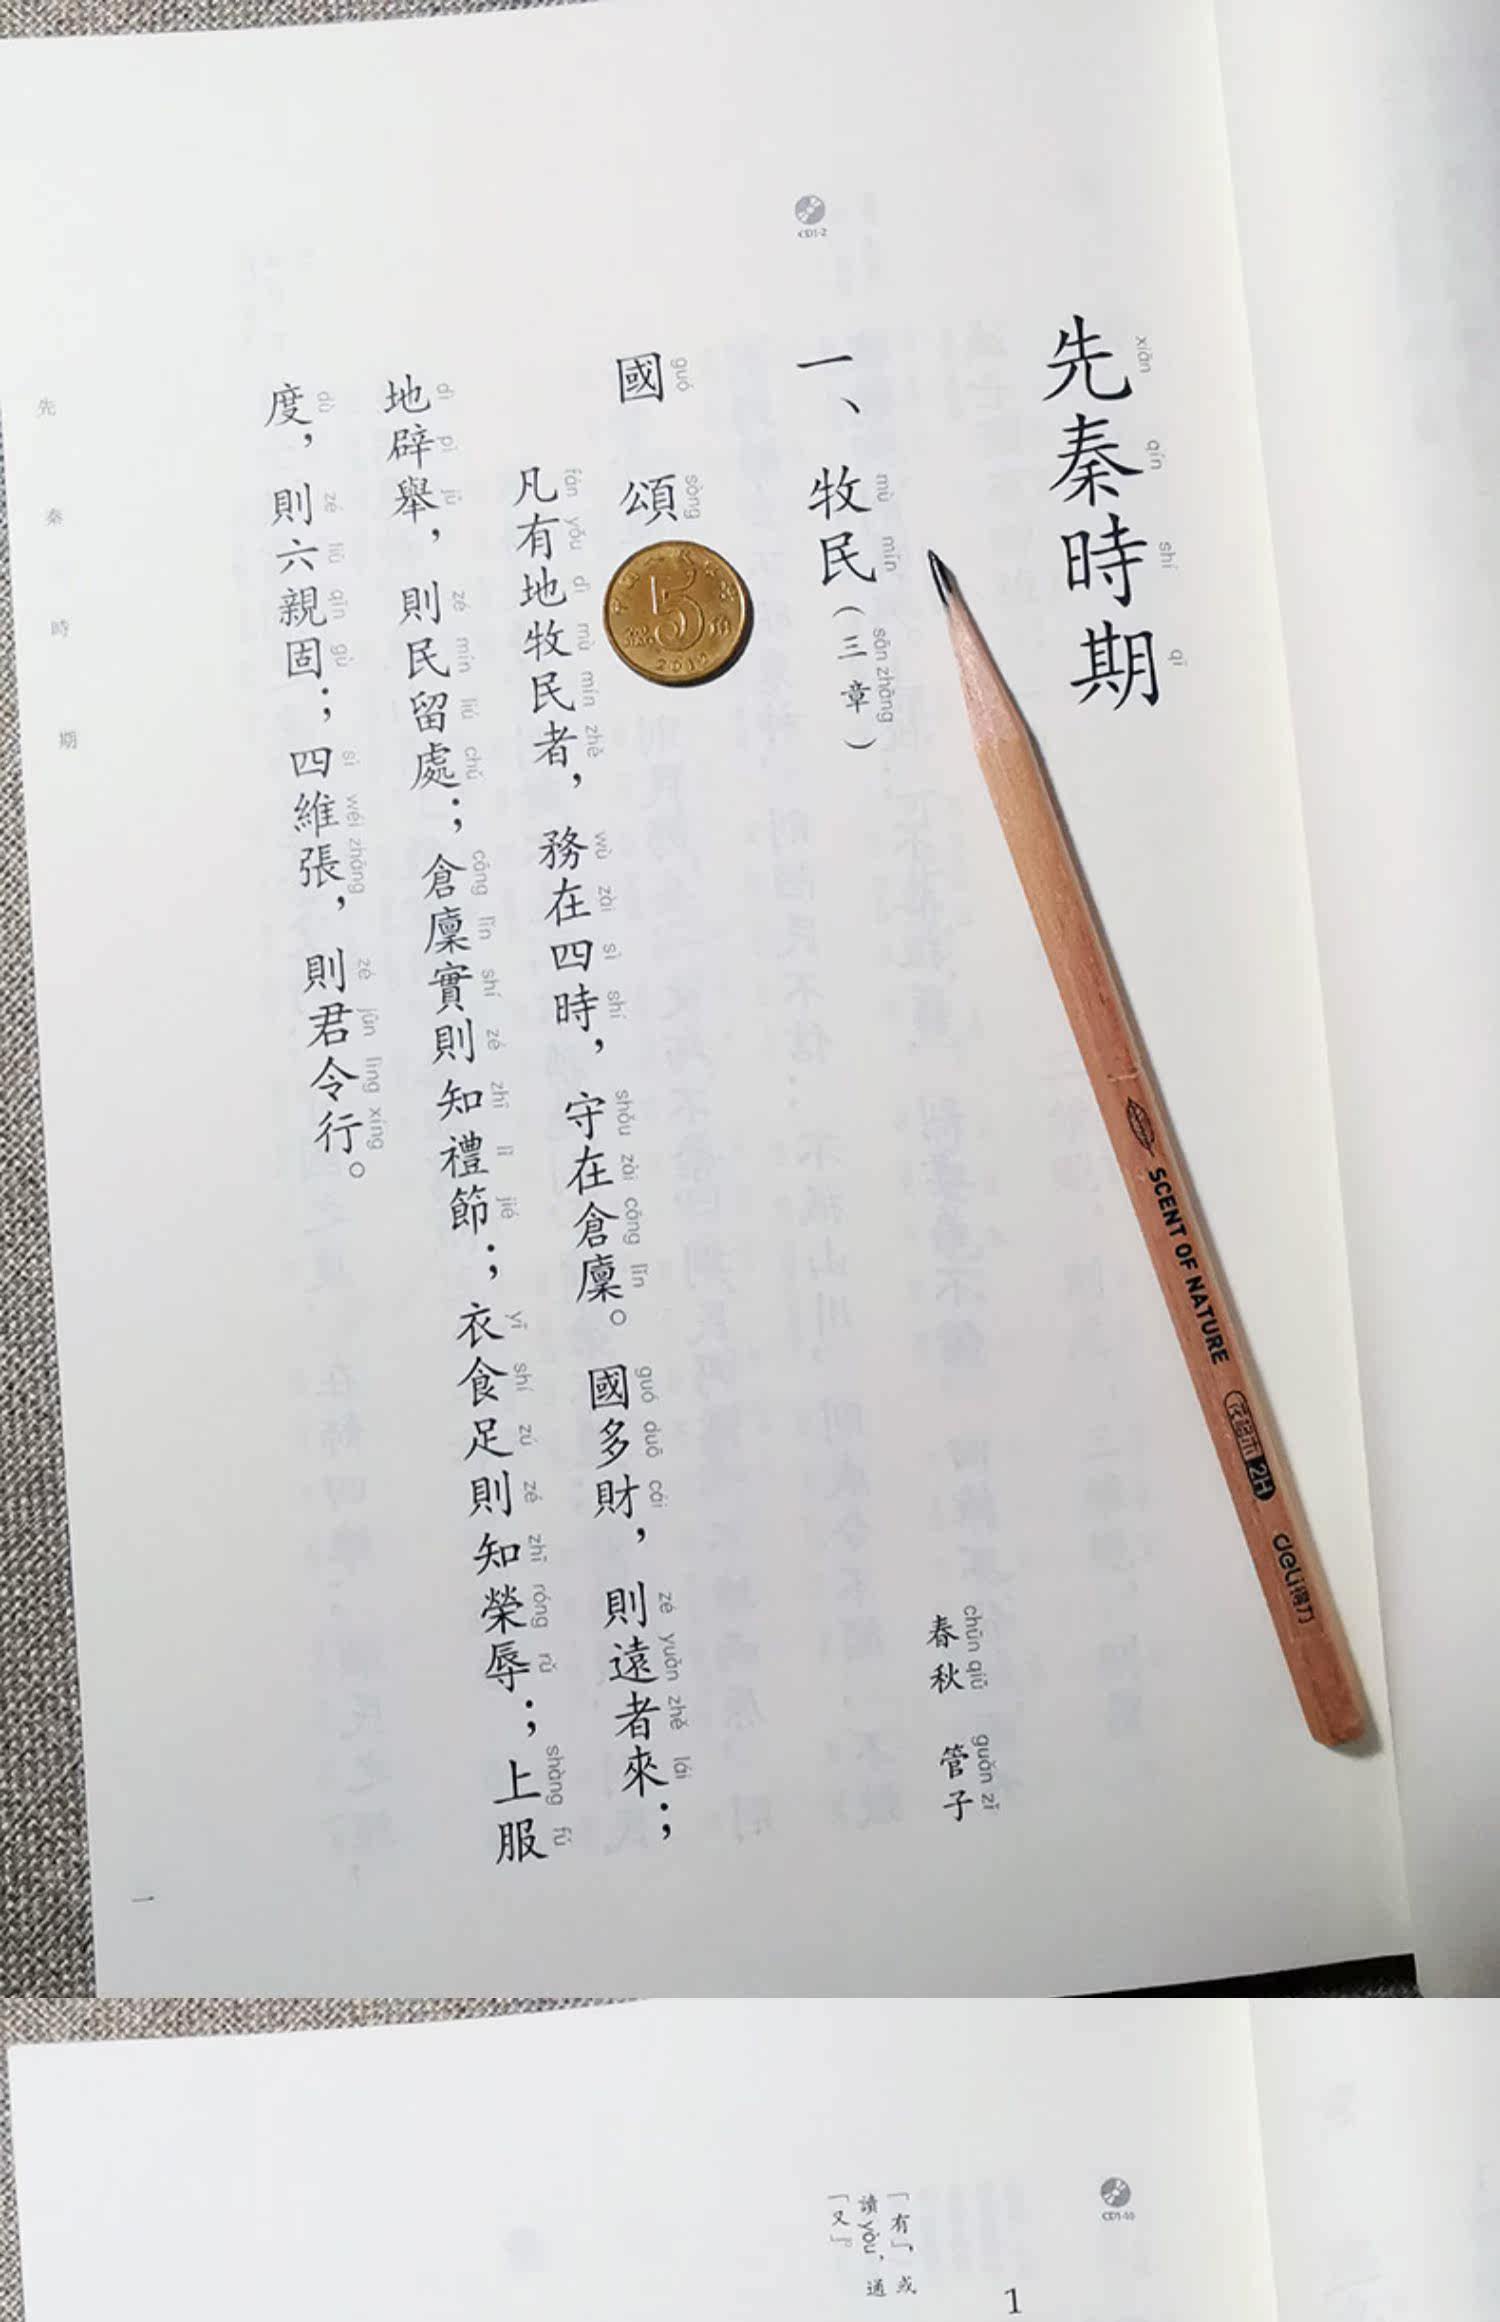 CD1-2
先秦時期
xiān qín shí qī
一、牧民（三章）
mù mín sān zhāng
春秋 管子
chūn qiū guǎn zǐ
國頌
guó sòng
凡有地牧民者，務在四時，守在倉廩。國多財，則遠者來；
fán yǒu dì mù mín zhě wù zài sì shí shǒu zài cāng lǐn guó duō cái zé yuǎn zhě lái
地辟舉，則民留處；倉廩實則知禮節；衣食足則知榮辱；上服
dì pì jǔ zé mín liú chǔ cāng lǐn shí zé zhī lǐ jié yī shí zú zé zhī róng rǔ shàng fú
度，則六親固；四維張，則君令行。
dù zé liù qīn gù sì wéi zhāng zé jūn lìng xíng
先秦時期
一
5
2012
SCENT OF NATURE
2H
deli得力
CD1-10
「有」，或
讀yòu，通
「又」。
1